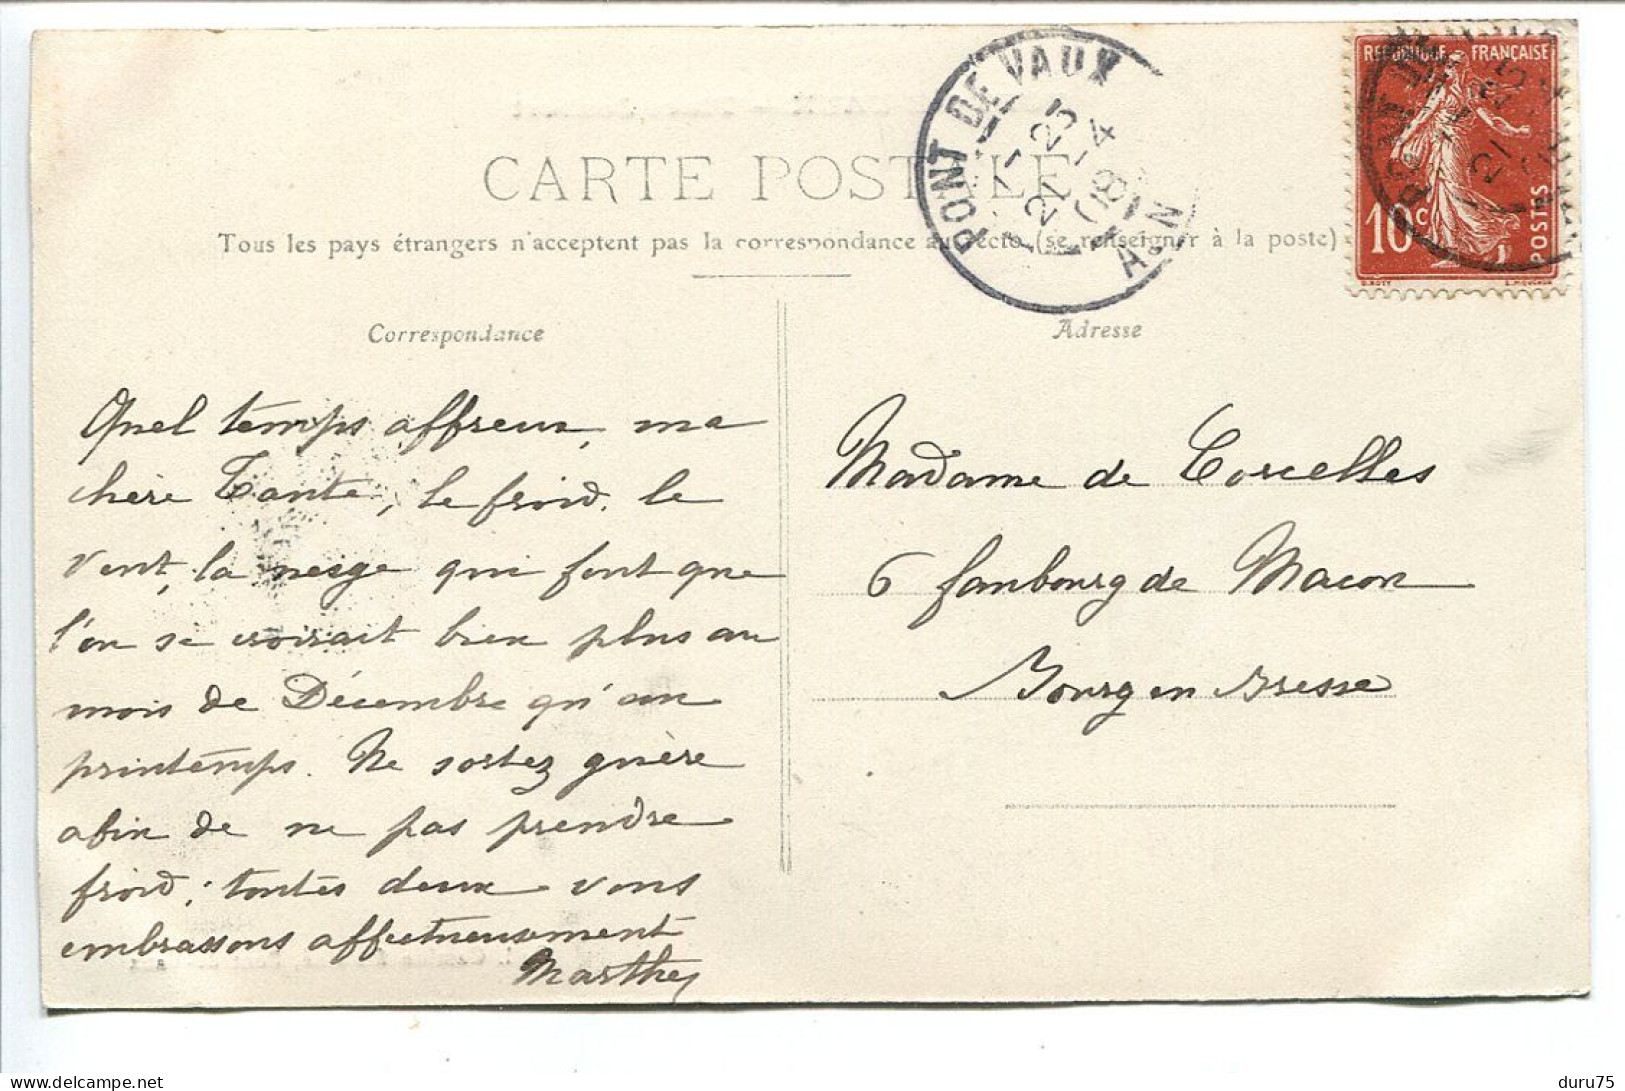 CARTE POSTALE
Tous les pays étrangers n'acceptent pas la correspondance au recto (se renseigner à la poste)
PONT DE VAUX
23
21 - 4
08
AIN
REPUBLIQUE FRANÇAISE
10c
POSTES
O. ROTY
Correspondance
Quel temps affreux, ma
chère Tante, le froid, le
vent, la neige qui font que
l'on se croirait bien plus au
mois de Décembre qu'au
printemps. Ne sortez guère
afin de ne pas prendre
froid; toutes deux vous
embrassons affectueusement
Marthe
Adresse
Madame de Corcelles
6 faubourg de Macon
Bourg en Bresse
duru75